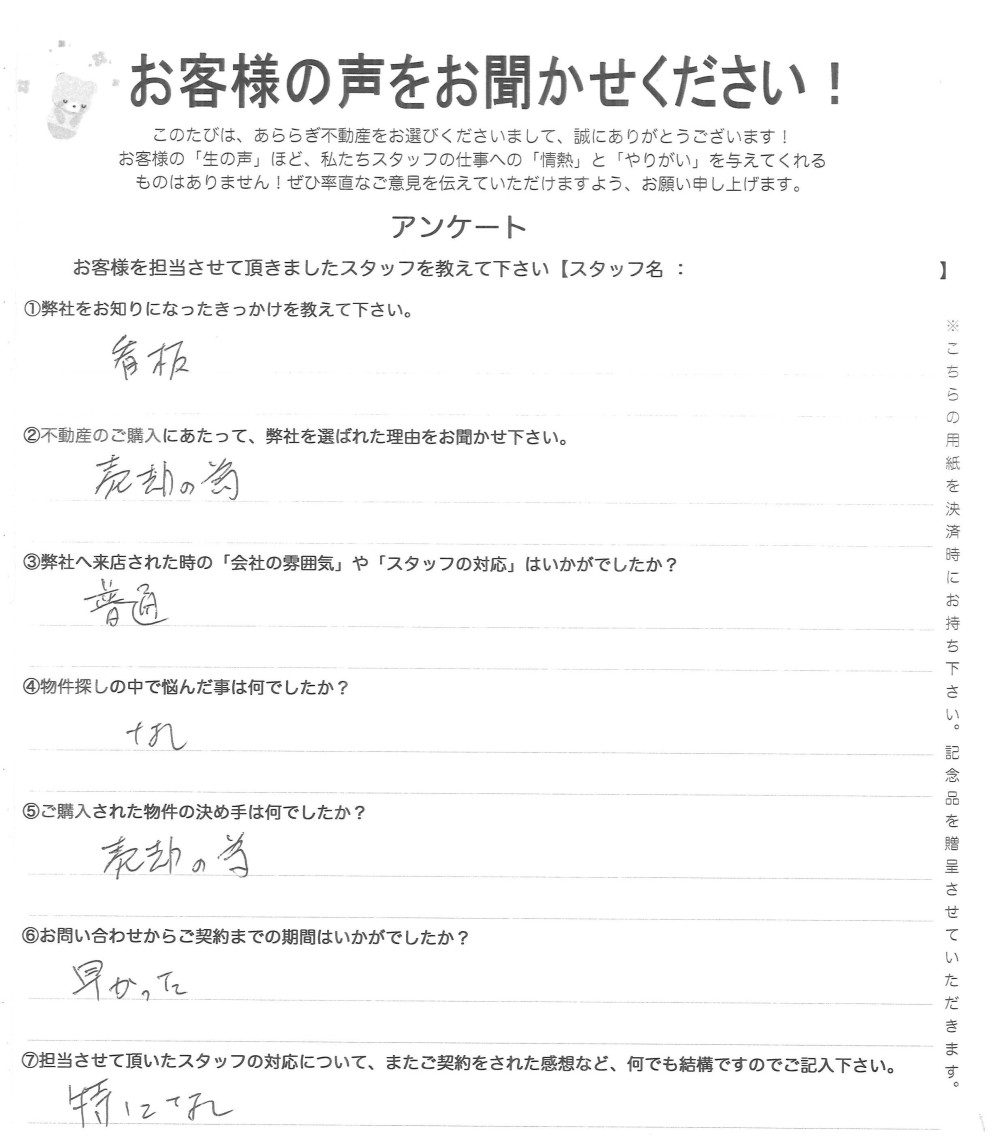 お客様の声をお聞かせください！
このたびは、あららぎ不動産をお選びくださいまして、誠にありがとうございます！
お客様の「生の声」ほど、私たちスタッフの仕事への「情熱」と「やりがい」を与えてくれる
ものはありません！ぜひ率直なご意見を伝えていただけますよう、お願い申し上げます。
アンケート
お客様を担当させて頂きましたスタッフを教えて下さい【スタッフ名 ： 】
①弊社をお知りになったきっかけを教えて下さい。
看板
②不動産のご購入にあたって、弊社を選ばれた理由をお聞かせ下さい。
売却の為
③弊社へ来店された時の「会社の雰囲気」や「スタッフの対応」はいかがでしたか？
普通
④物件探しの中で悩んだ事は何でしたか？
なし
⑤ご購入された物件の決め手は何でしたか？
売却の為
⑥お問い合わせからご契約までの期間はいかがでしたか？
早かった
⑦担当させて頂いたスタッフの対応について、またご契約をされた感想など、何でも結構ですのでご記入下さい。
特になし
※こちらの用紙を決済時にお持ち下さい。記念品を贈呈させていただきます。